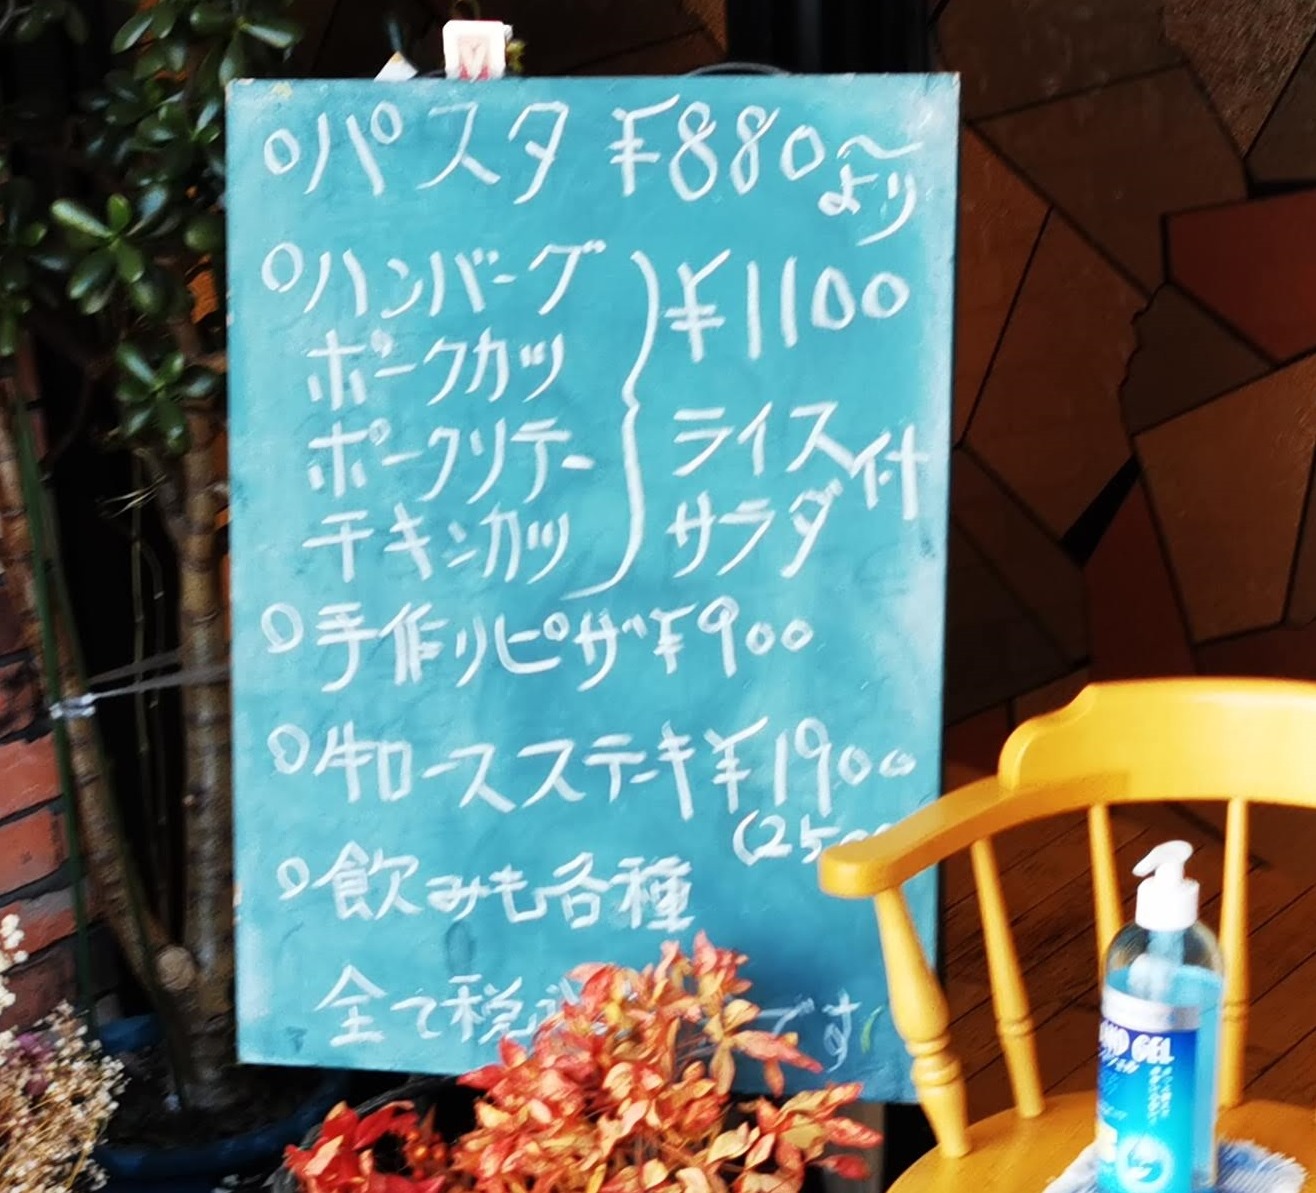 ○パスタ ¥880〜より
○ハンバーグ
ポークカツ
ポークソテー
チキンカツ
¥1100
ライス
サラダ
付
○手作りピザ¥900
○牛ロースステーキ¥1900
○飲みも各種
全て税込 です
HAND GEL